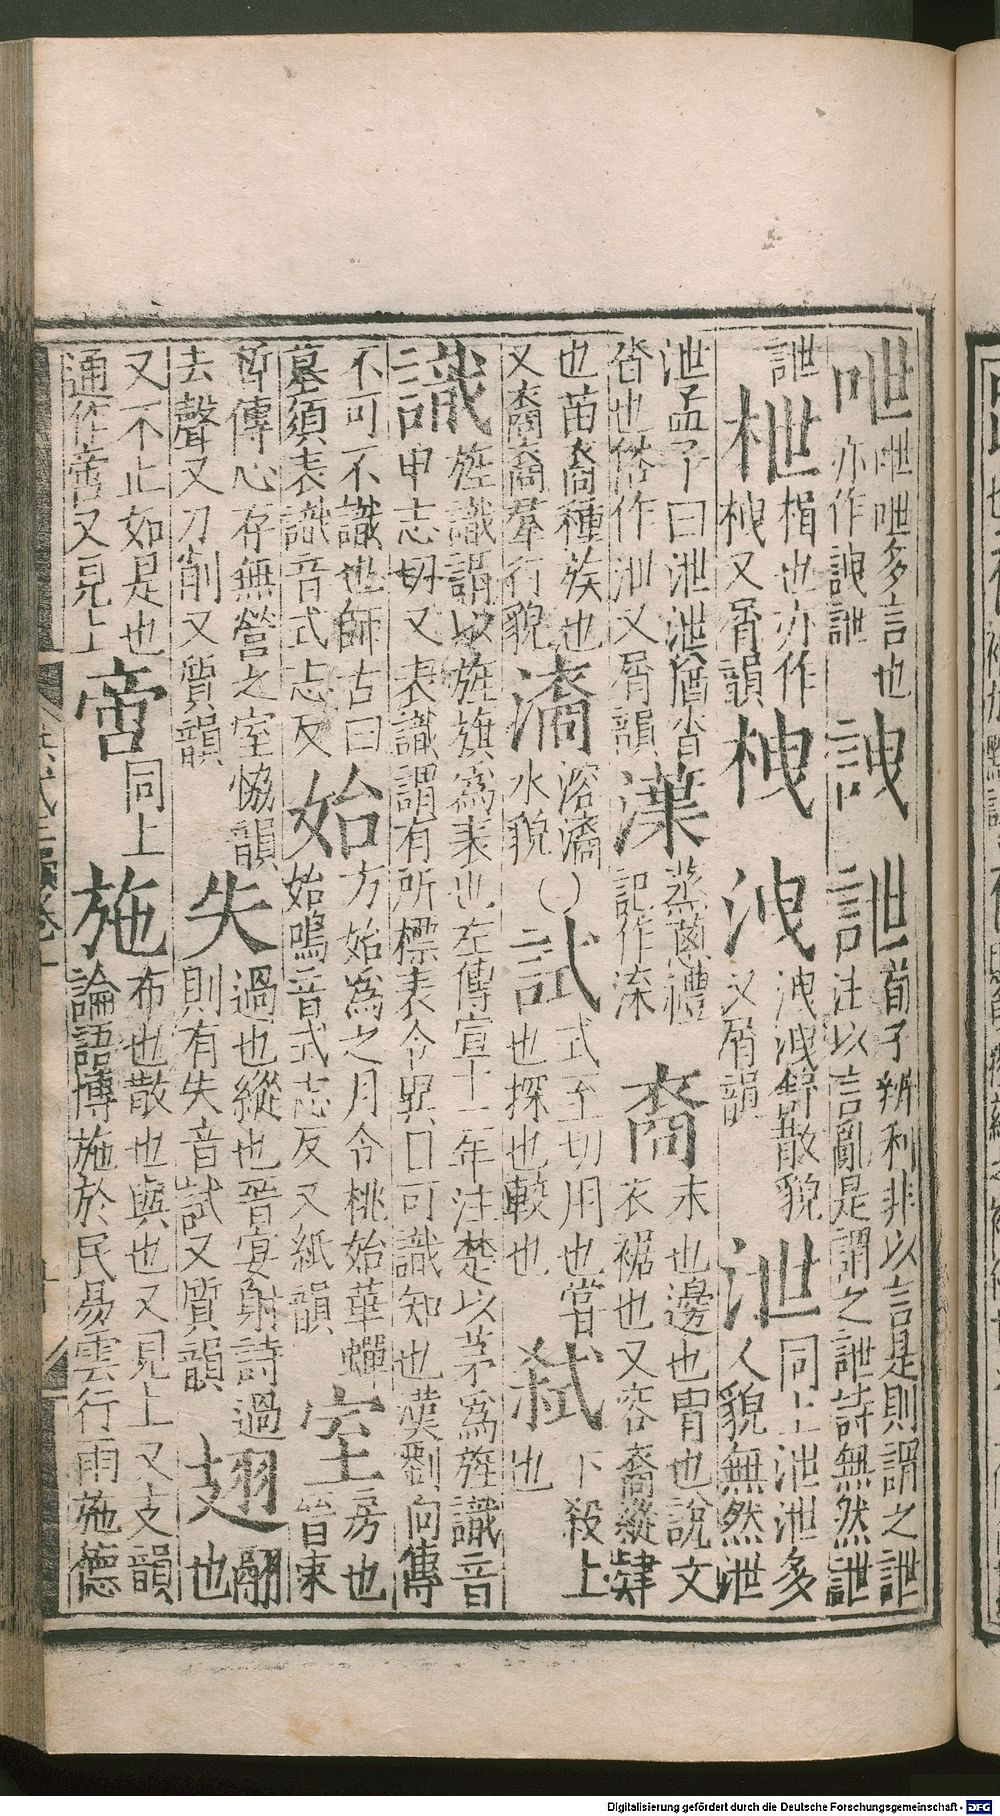 呭呭呭多言也亦作詍詍 詍 詍荀子辨利非以言是則謂之詍注以言亂是謂之詍詩無然詍
詍 枻楫也亦作栧又屑韻 栧 洩洩洩舒散貌又屑韻 泄同上泄泄多人貌無然泄
泄孟子曰泄泄猶沓沓也俗作泄又屑韻 渫蒸葱禮記作渫 裔末也邊也冑也說文衣裾也又容裔縱肆
也苗裔種族也又裔裔羣行貌 㵝溶㵝水貌 試式至切用也嘗也探也較也 弒下殺上也
識旌識謂以旌旗爲表也左傳宣十二年注楚以茅爲旌識音申志切又表識謂有所標表令異日可識知也漢劉向傳
不可不識也師古曰墓須表識音式志反 始方始爲之月令桃始華蟬始鳴音式志反又紙韻 室房也晉束
晳傳心存無營之室恊韻去聲又刀削又質韻 失過也縱也晉宴射詩過則有失音試又質韻 翅翮也
又不止如是也通作啻又見上 啻同上 施布也散也與也又見上又支韻論語博施於民易雲行雨施德
Digitalisierung gefördert durch die Deutsche Forschungsgemeinschaft - DFG